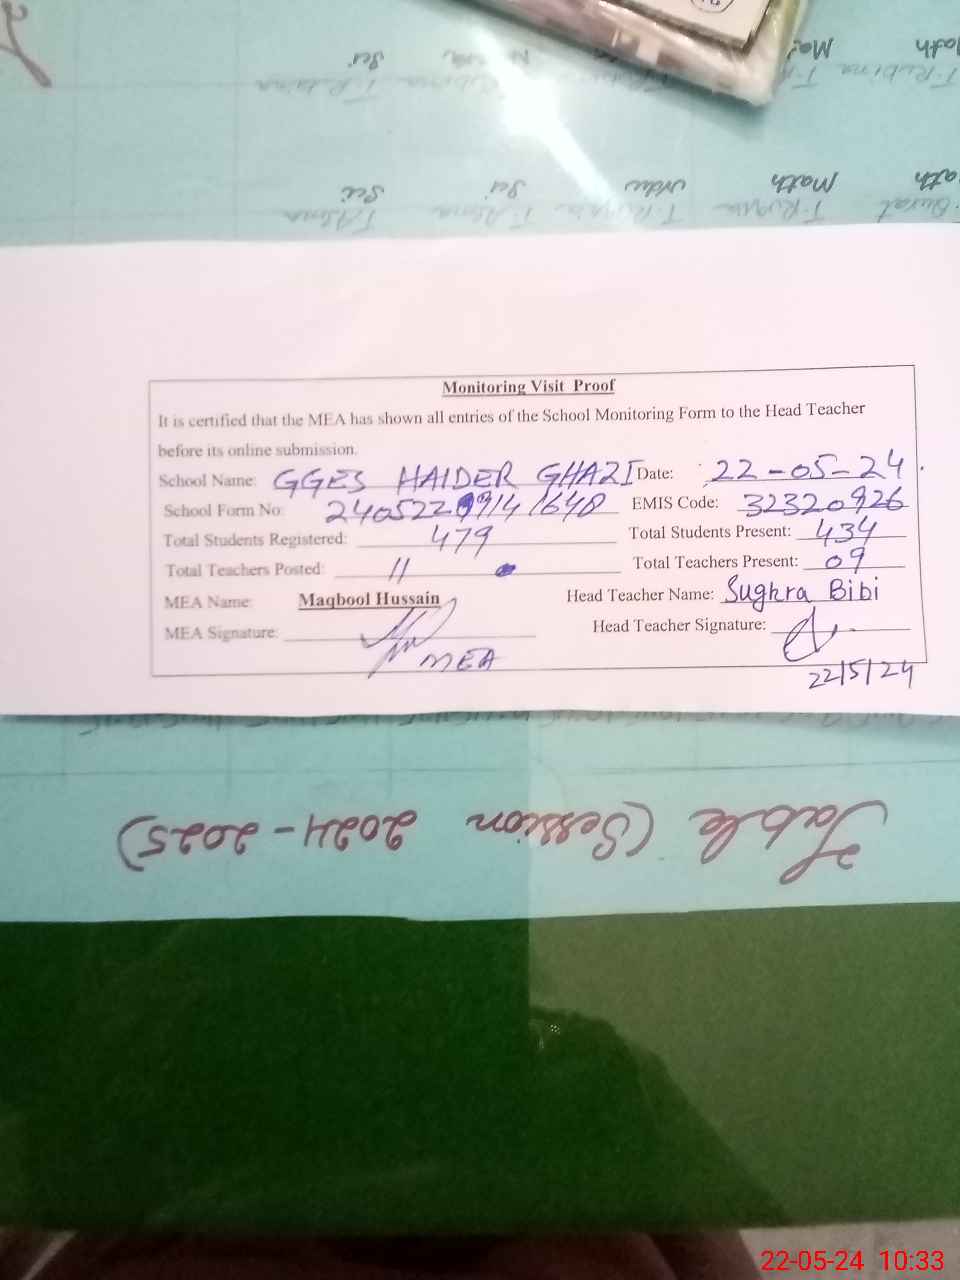 Math
Ma
Sci
T.Rubina
Math
Math
Urdu
Sci
Sci
Monitoring Visit Proof
It is certified that the MEA has shown all entries of the School Monitoring Form to the Head Teacher
before its online submission.
School Name: GGES HAIDER GHAZI Date: 22-05-24
School Form No: EMIS Code: 32320926
Total Students Registered: 479 Total Students Present: 434
Total Teachers Posted: 11 Total Teachers Present: 09
MEA Name: Maqbool Hussain Head Teacher Name: Sughra Bibi
MEA Signature: MEA Head Teacher Signature:
22/5/24
Table (Session 2024-2025)
22-05-24 10:33